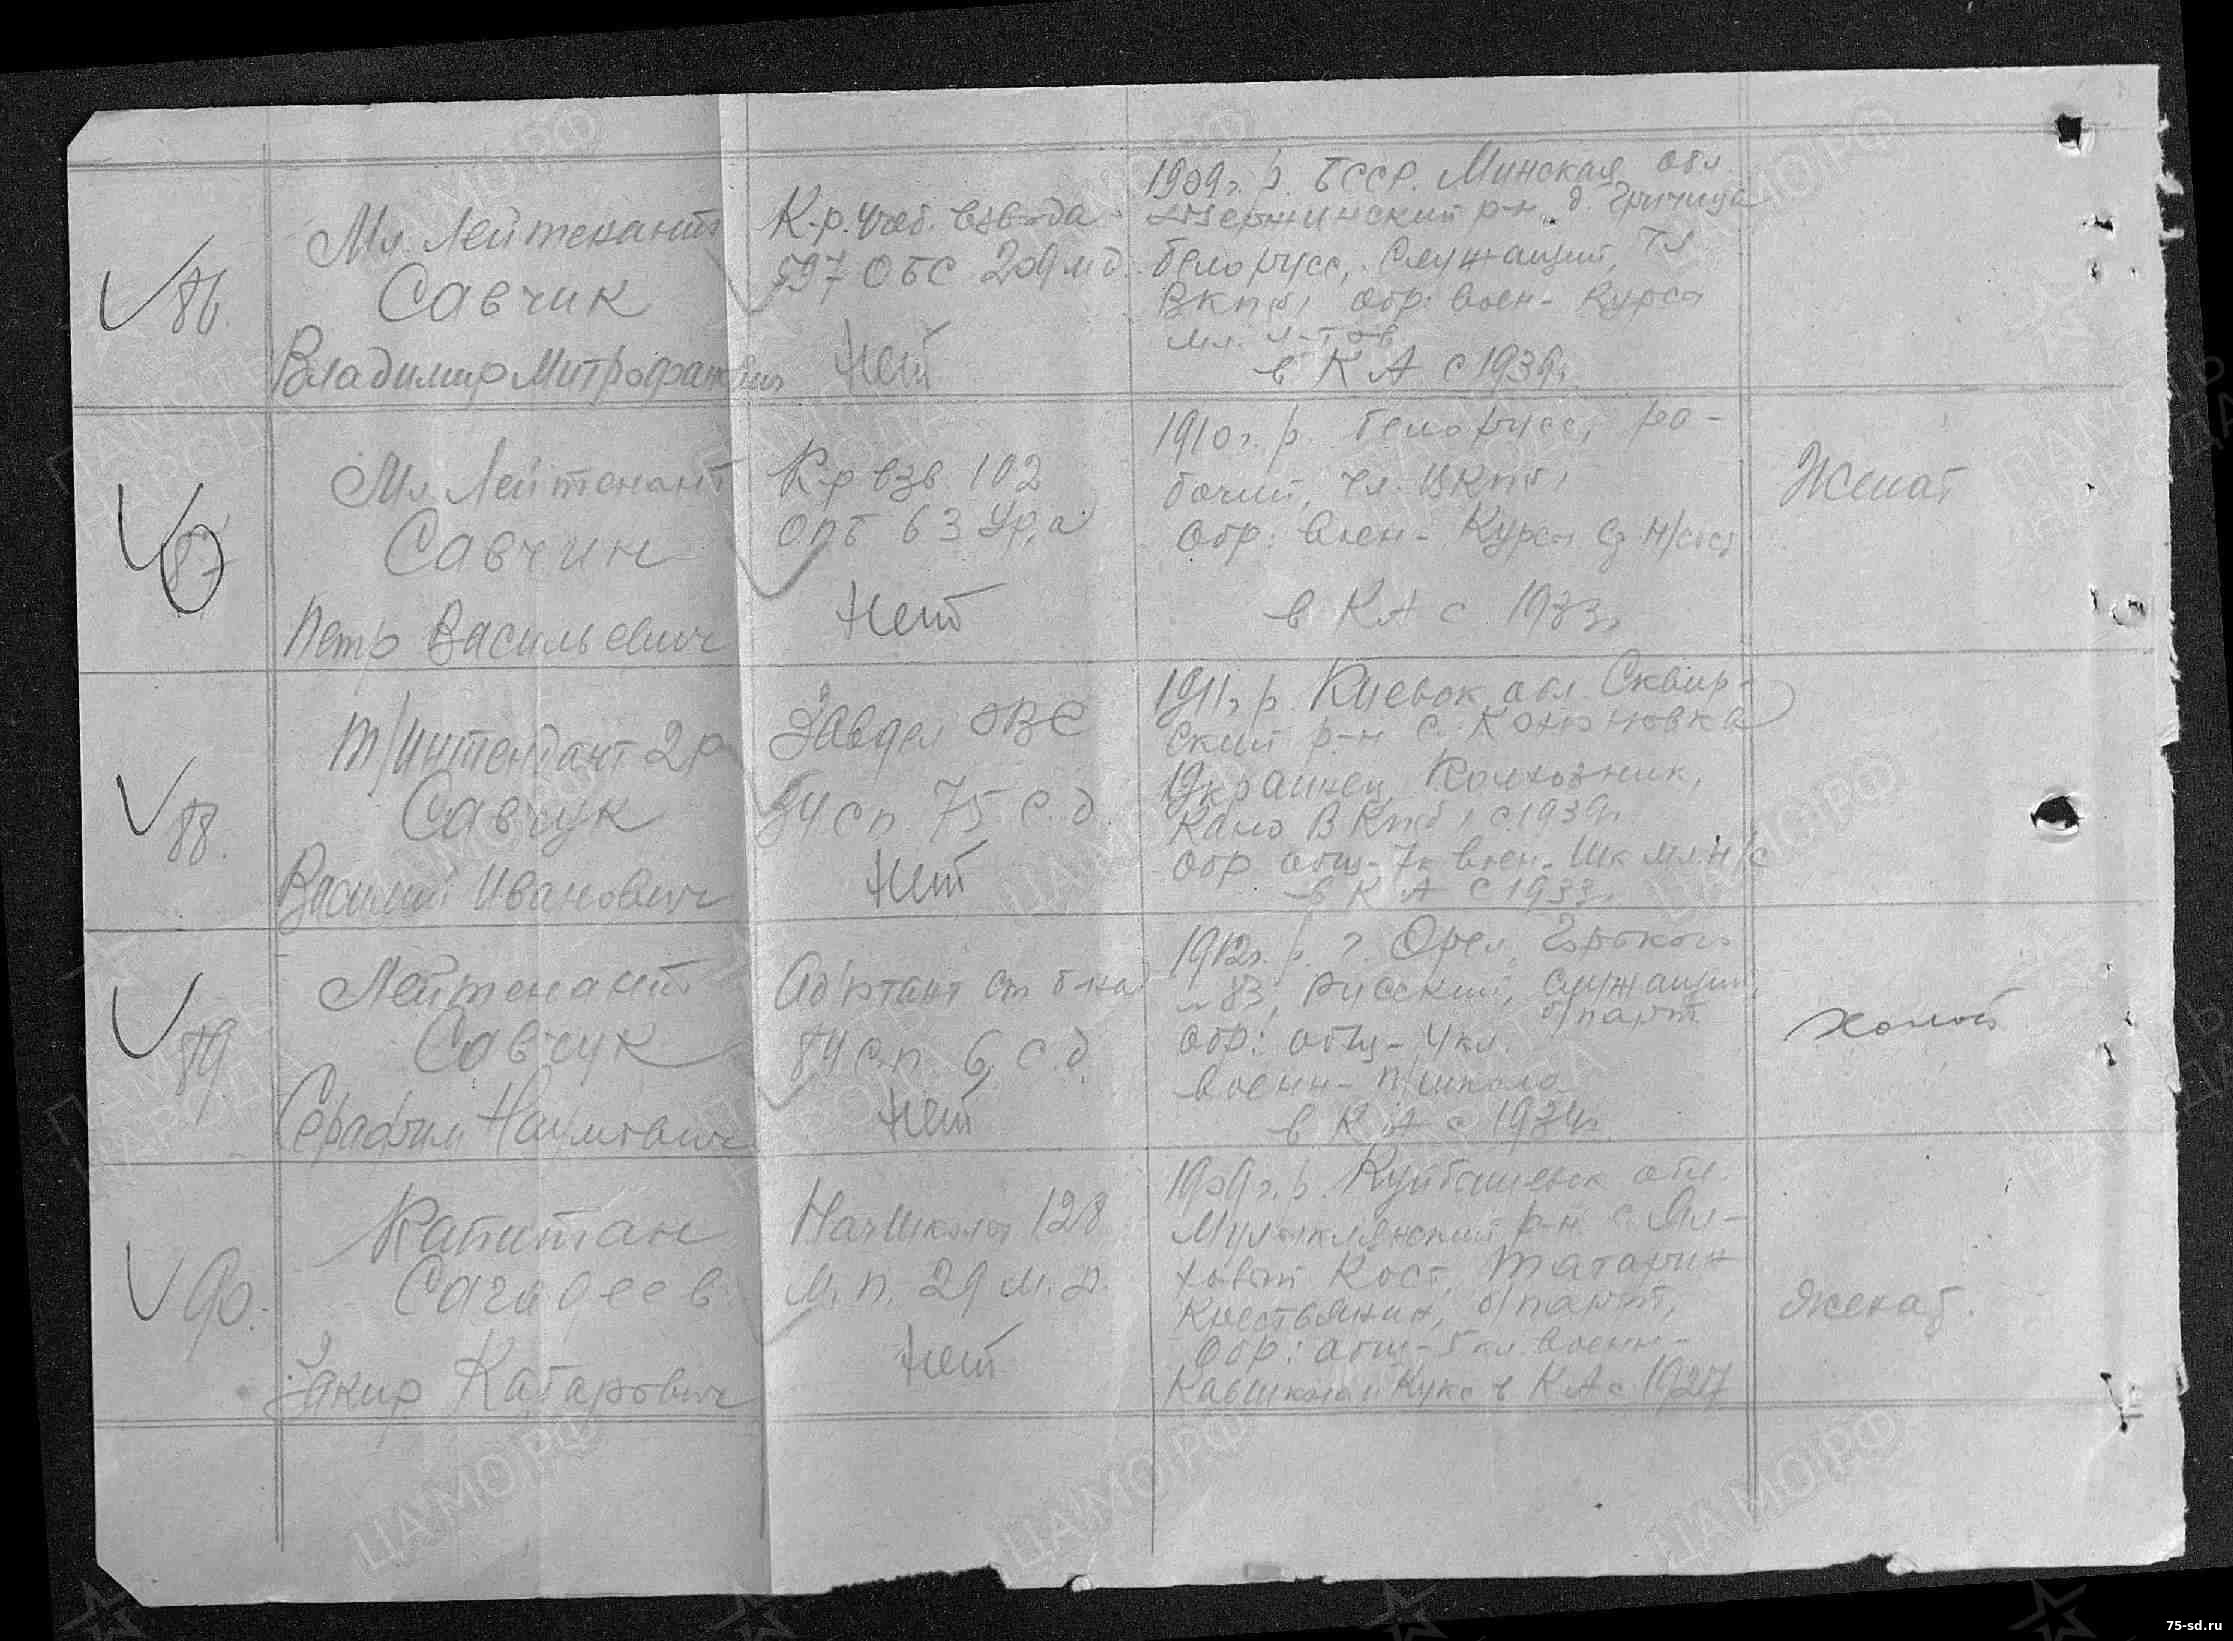 86.
Мл. Лейтенант
Савчик
Владимир Митрофанович
К-р. учеб. взвода
597 ОБС 209 м д.
Нет
1909 г. р. БССР. Минская обл
Дзержинский р-н. д. Гричица
белорусс, Служащий, чл
ВКПб, обр: воен- Курсы
мл. л-тов
в КА с 1936г.
87
Мл. Лейтенант
Савчин
Петр Васильевич
К-р взв 102
опб 63 Ур,а
Нет
1910 г. р. белорусс, ра-
бочий, чл. ВКПб,
обр: воен- Курсы
в КА с 1933г
Женат
88.
т/интендант 2р
Савчук
Василий Иванович
Завдел ОВС
34 сп 75 с.д.
Нет
1911г р. Киевск обл. Сквир-
ский р-н с.
Украинец, Колхозник,
Канд ВКПб, с 1939г
обр общ- 7к воен- Шк мл н/с
в КА с 1933г.
89.
Лейтенант
Савчук
Серафим Наумович
Ад'ютант ст б-на
84 сп. 6 с.д.
Нет
1912г. р. г. Орел,
83, русский, служащий,
б/парт
обр: общ- 4 кл.
военн- п/школа
в КА с 1934г.
холост
90.
Капитан
Сагадеев
Закир Катарович
Нач Школы 128
м. п. 29 м. д.
Нет
1909 г. р. Куйбышевск обл.
р-н с. Ял-
Татарин
Крестьянин, б/парт,
обр: общ- 5 кл. военн-
Кавшкола и Кукс в КА с 1927
Женат.
ЦАМО РФ
ПАМЯТЬ НАРОДА
75-sd.ru